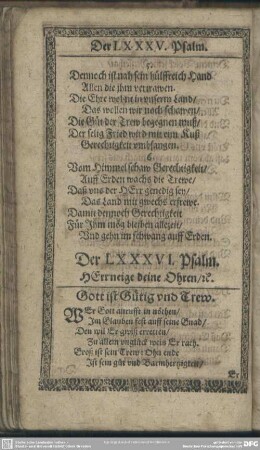 Der LXXXV. Psalm.
5.
Dennoch ist nah sein hülffreich Hand
Allen die ihm vertrawen.
Die Ehre wohnt in unserm Land/
Das wollen wir noch schawen/
Die Gün der Trew begegnen muß/
Der selig Fried wird mit eym Kuß
Gerechtigkeit umbfangen.
6.
Vom Himmel schaw Gerechtigkeit/
Auff Erden wachs die Trewe/
Daß uns der HErr genedig sey/
Das Land mit gwechs erfrewe.
Damit dennoch Gerechtigkeit
Für Ihm mög bleiben allezeit/
Und gehn im schwang auff Erden.
Der LXXXVI. Psalm.
HErr neige deine Ohren/ꝛc.
Gott ist Gütig vnd Trew.
WEr Gott anruft in nöthen/
Im Glauben fest auff seine Gnad/
Den wil Er gwiß erretten/
Zu allem unglück weis Er rath.
Groß ist sein Trew/ Ohn ende
Ist sein güt und Barmhertzigkeit/
Er